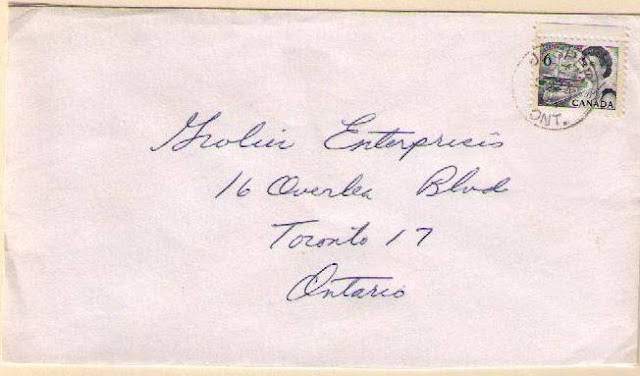 6
CANADA
ONT.
Grolier Enterprises
16 Overlea Blvd
Toronto 17
Ontario